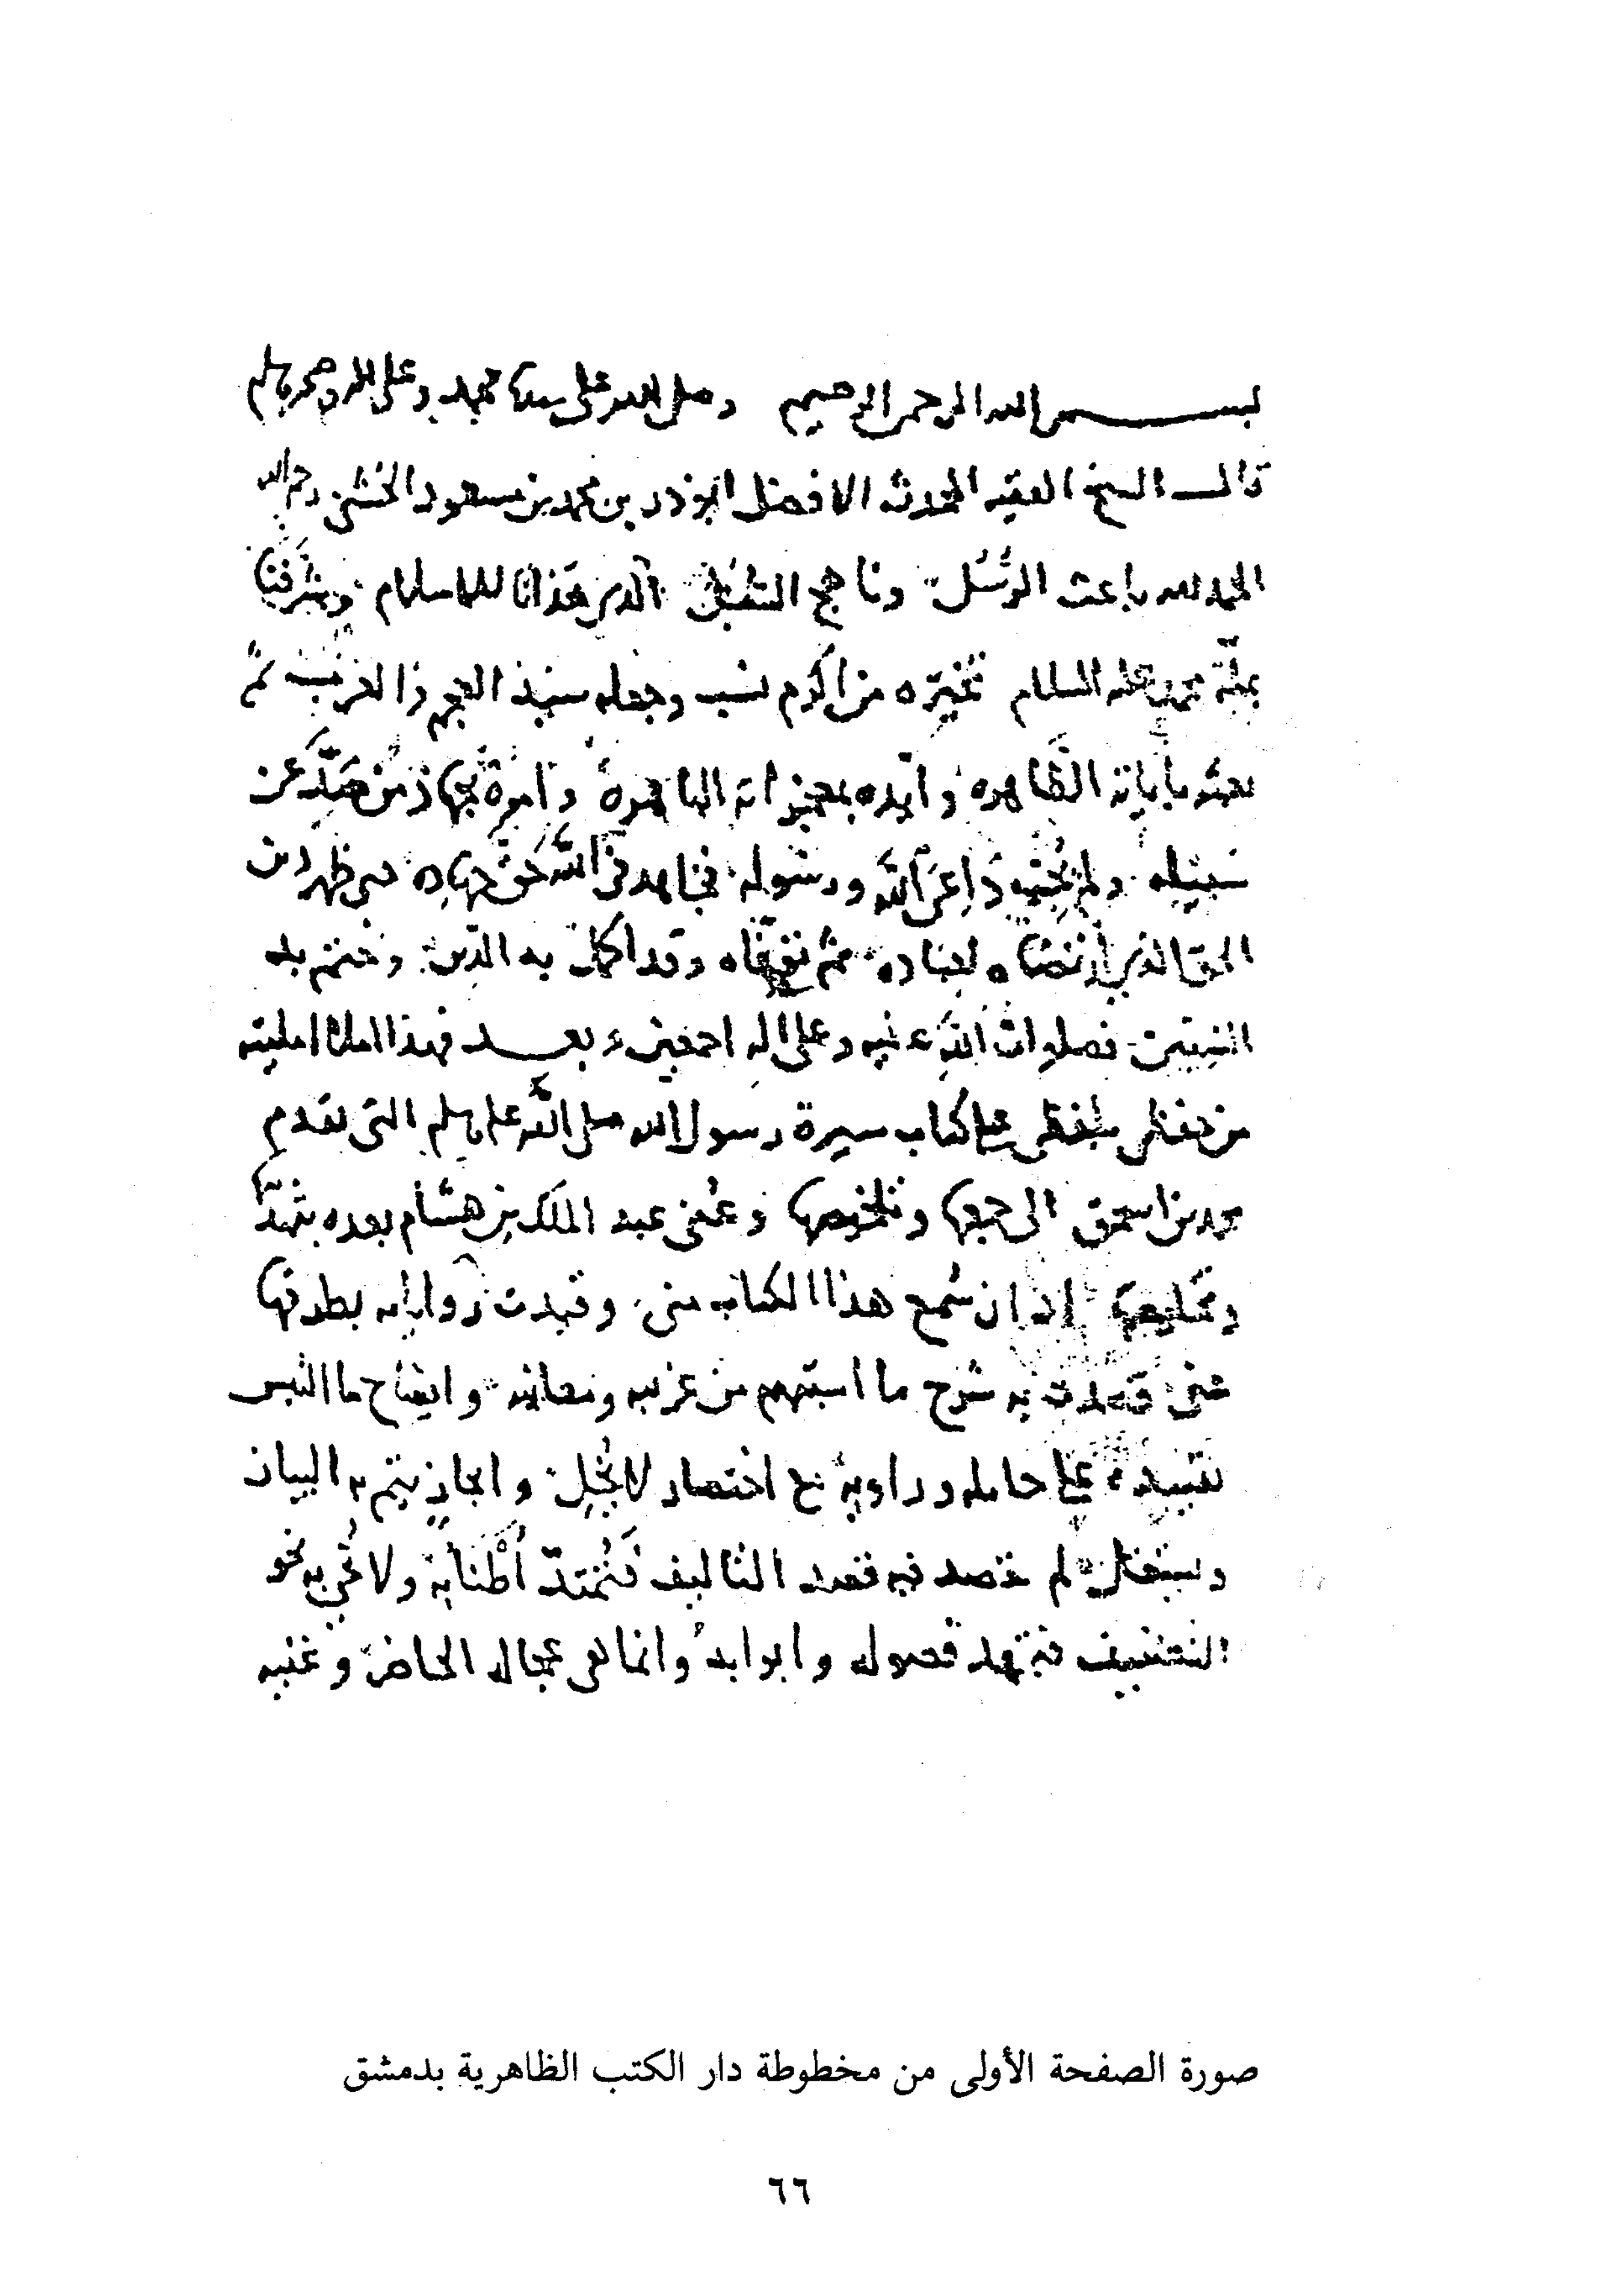 بسم الله الرحمن الرحيم وصلى الله على سيدنا محمد وعلى اله وصحبه وسلم
قال الشيخ الفقيه المحدث الافضل ابو ذر بن محمد بن مسعود الخشني رحمه الله
الحمد لله باعث الرُّسُل وناهج السُّبُل الذي هَدَانا للاسلام وشَرَّفنا
بملّة محمد عليه السلام تخيّره من اكرم نسب وجعله سيّد العجم والعرب ثمّ
بعثه باياته الظّاهرة وايّده بمعجزاته الباهرة وامره بجهاد من صَدَّ عن
سبيله ولم يُجِب دَاعِيَ اللَّه ورسوله فجاهد في اللَّه حَقّ جهاده حتى ظهر دين
الحق الذي ارتضاه لعباده ثم توفّاه وقد اكمل به الدّين وختم به
النبيين فصلوات اللَّه عليه وعلى اله اجمعين وبعد فهذا املاء امليته
من حفظي بلفظي على كتاب سيرة رسول الله صلى اللَّه عليه وسلم التي تقدم
محمد بن اسحق الى جمعها وتلخيصها وعُني عبد الملك بن هشام بعده
وتخليصها اذ ان سُمع هذا الكتاب مني وقيدت رواياته بطرقها
عني قصدت به شرح ما استبهم من غريبه ومعانيه وايضاح ما التبس
تقييده على حامله وراويه مع اختصار لا يُخِل وايجاز يتم به البيان
ويستقل لم نقصد فيه قصد التاليف فَتُمتدّ أَطْنابُه ولا نحي به نحو
التصنيف فتمهد فصوله وابوابه وانما هي عجالة الحاضر وغنيه
صورة الصفحة الأولى من مخطوطة دار الكتب الظاهرية بدمشق
٦٦